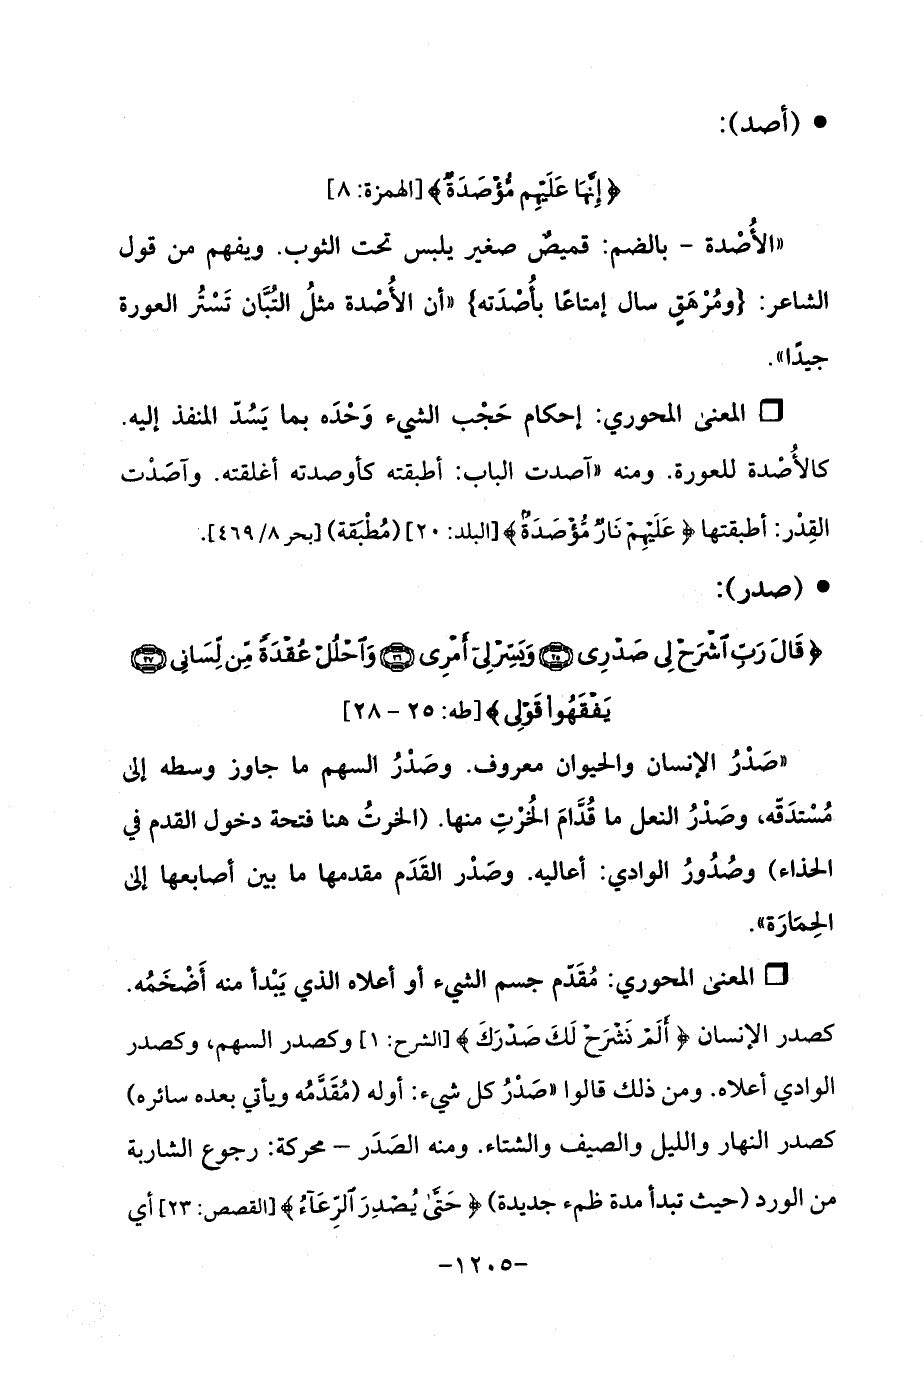 • (أصد):
﴿إِنَّهَا عَلَيْهِم مُّؤْصَدَةٌ﴾ [الهمزة: ٨]
«الأُصْدة - بالضم: قميصٌ صغير يلبس تحت الثوب. ويفهم من قول
الشاعر: {ومُرْهَقٍ سال إمتاعًا بأُصْدَته} «أن الأُصْدة مثلُ التُبَّان تَسْتُر العورة
جيدًا».
❒ المعنى المحوري: إحكام حَجْب الشيء وَحْدَه بما يَسُدّ المنفذ إليه.
كالأُصْدة للعورة. ومنه «آصدت الباب: أطبقته كأوصدته أغلقته. وآصَدْت
القِدْر: أطبقتها ﴿عَلَيْهِمْ نَارٌ مُّؤْصَدَةٌ﴾ [البلد: ٢٠] (مُطْبَقة) [بحر ٨/ ٤٦٩].
• (صدر):
﴿قَالَ رَبِّ ٱشْرَحْ لِى صَدْرِى ٢٥ وَيَسِّرْ لِىٓ أَمْرِى ٢٦ وَٱحْلُلْ عُقْدَةً مِّن لِّسَانِى ٢٧
يَفْقَهُوا۟ قَوْلِى﴾ [طه: ٢٥ - ٢٨]
«صَدْرُ الإنسان والحيوان معروف. وصَدْرُ السهم ما جاوز وسطه إلى
مُسْتدَقّه، وصَدْرُ النعل ما قُدَّامَ الخُرْتِ منها. (الخرتُ هنا فتحة دخول القدم في
الحذاء) وصُدُورُ الوادي: أعاليه. وصَدْر القَدَم مقدمها ما بين أصابعها إلى
الحِمَارَة».
❒ المعنى المحوري: مُقَدّم جسم الشيء أو أعلاه الذي يَبْدأ منه أَضْخَمُه.
كصدر الإنسان ﴿أَلَمْ نَشْرَحْ لَكَ صَدْرَكَ﴾ [الشرح: ١] وكصدر السهم، وكصدر
الوادي أعلاه. ومن ذلك قالوا «صَدْرُ كل شيء: أوله (مُقَدَّمُه ويأتي بعده سائره)
كصدر النهار والليل والصيف والشتاء. ومنه الصَدَر - محركة: رجوع الشاربة
من الورد (حيث تبدأ مدة ظمء جديدة) ﴿حَتَّىٰ يُصْدِرَ ٱلرِّعَآءُ﴾ [القصص: ٢٣] أي
-١٢٠٥-